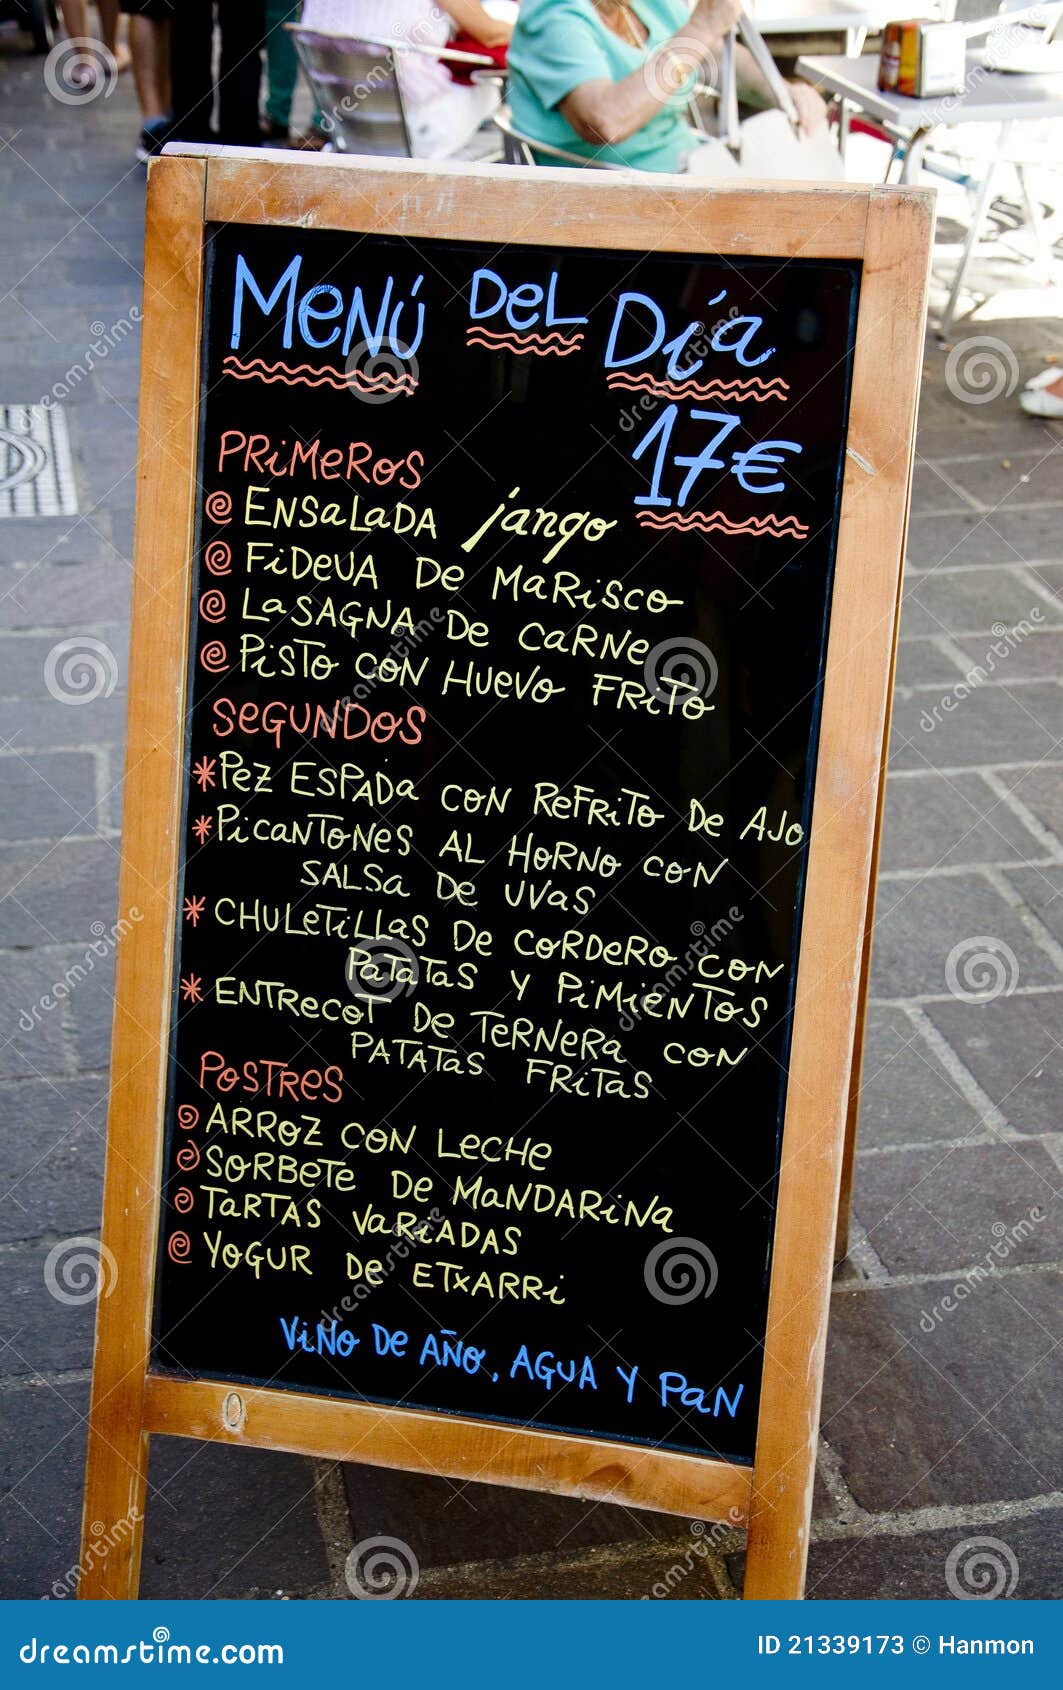 Menú Del Día
17€
PRiMeROS
ENSaLaDA jango
FiDeUA De MaRiSCO
LaSAGNA De CaRNe
PiSTO CON HUeVO FRiTO
SeGUNDOS
Pez ESPADa CON ReFRiTO De AJO
PiCaNTONeS AL HORNO CON
SALSa De UVaS
CHULeTiLLaS De CORDeRO CON
PaTaTaS Y PiMieNTOS
ENTReCOT De TeRNeRA CON
PATATaS FRiTAS
POSTReS
ARROZ CON LeCHe
SORBeTe De MaNDARiNA
TaRTAS VaRiADAS
YOGUR De ETXARRi
ViNO De AÑO, AGUA Y PaN
dreamstime.com
ID 21339173 © Hanmon